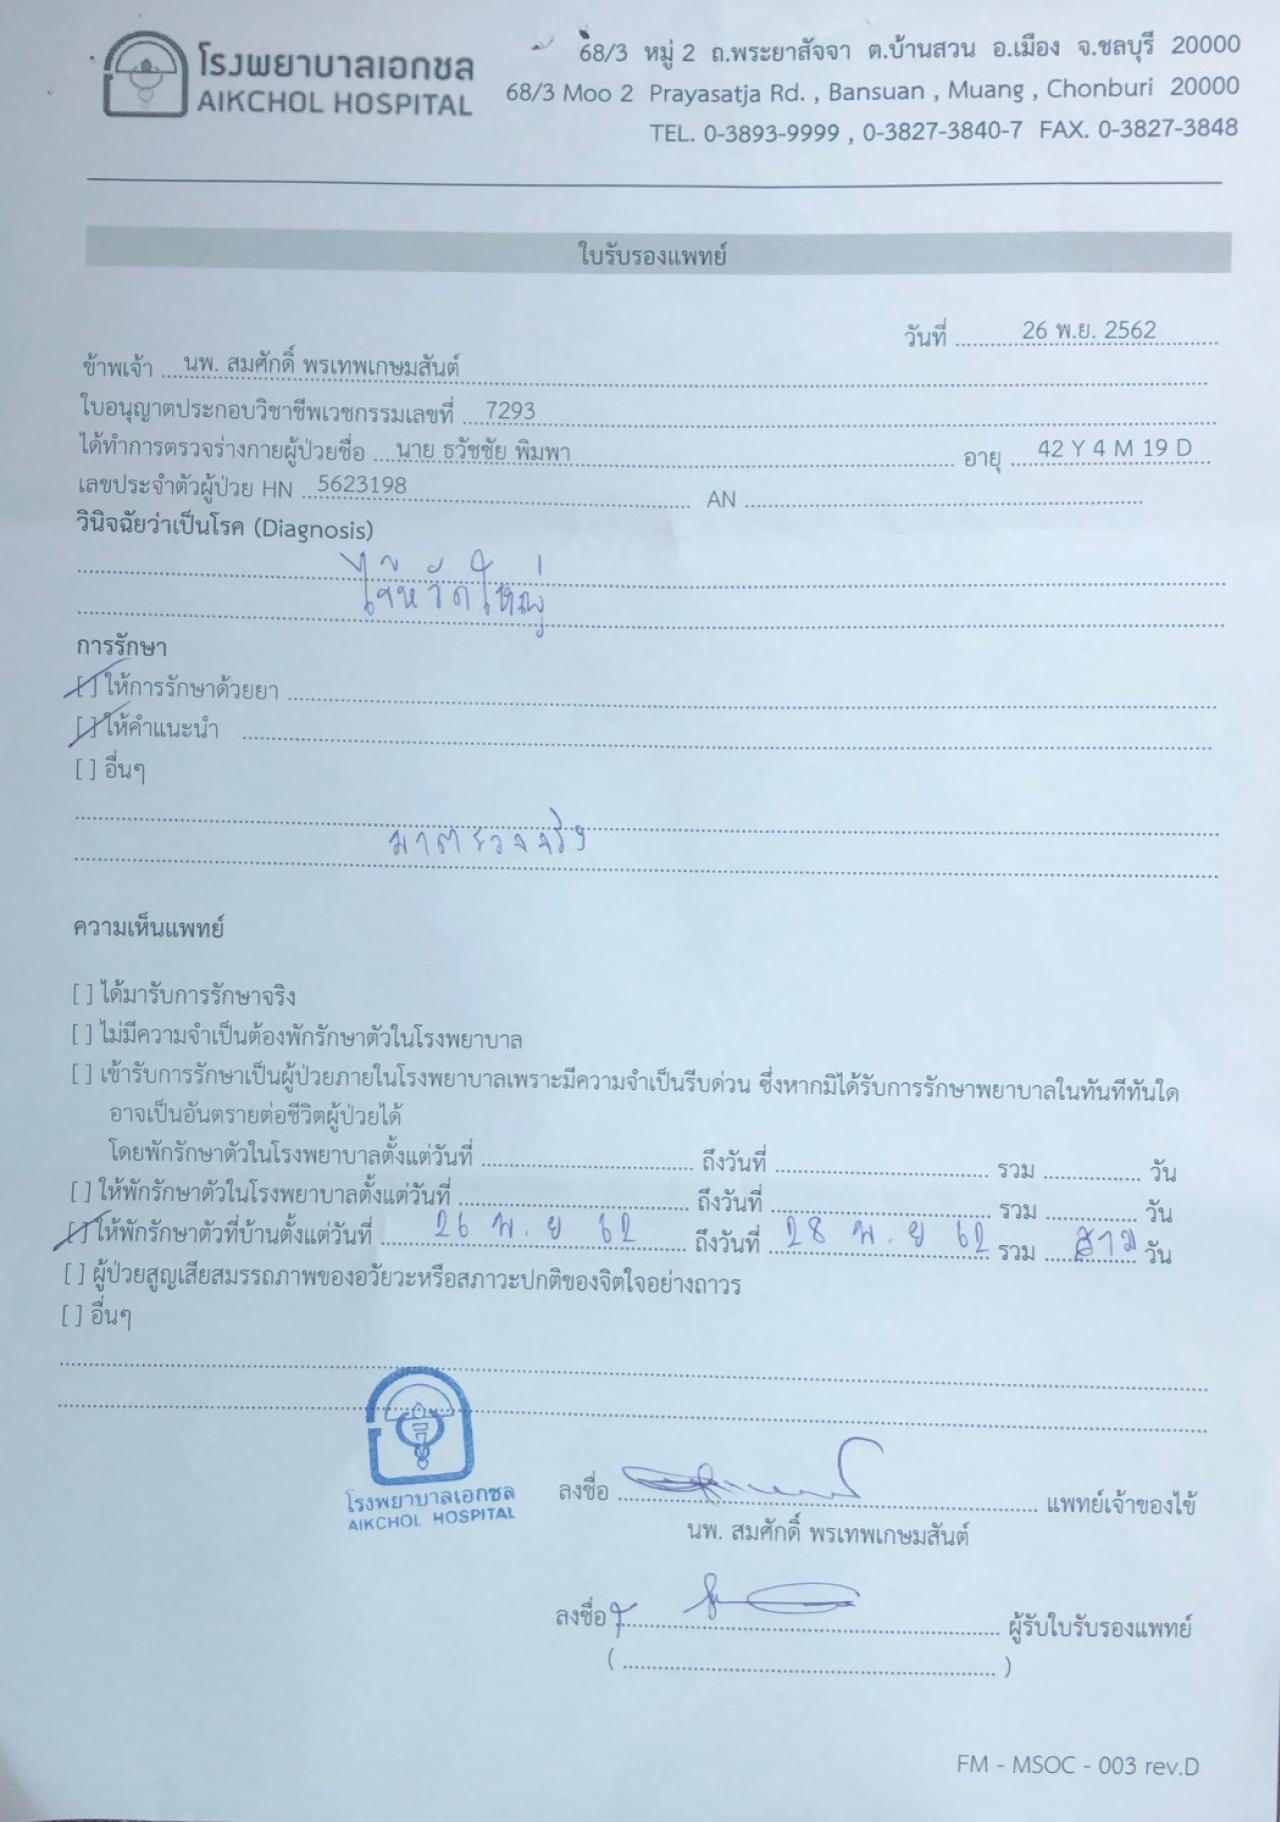 โรงพยาบาลเอกชล
AIKCHOL HOSPITAL
68/3 หมู่ 2 ถ.พระยาสัจจา ต.บ้านสวน อ.เมือง จ.ชลบุรี 20000
68/3 Moo 2 Prayasatja Rd. , Bansuan , Muang , Chonburi 20000
TEL. 0-3893-9999 , 0-3827-3840-7 FAX. 0-3827-3848
ใบรับรองแพทย์
วันที่ 26 พ.ย. 2562
ข้าพเจ้า นพ. สมศักดิ์ พรเทพเกษมสันต์
ใบอนุญาตประกอบวิชาชีพเวชกรรมเลขที่ 7293
ได้ทำการตรวจร่างกายผู้ป่วยชื่อ นาย ธวัชชัย พิมพา อายุ 42 Y 4 M 19 D
เลขประจำตัวผู้ป่วย HN 5623198 AN
วินิจฉัยว่าเป็นโรค (Diagnosis)
ไข้หวัดใหญ่
การรักษา
[ ] ให้การรักษาด้วยยา
[ ] ให้คำแนะนำ
[ ] อื่นๆ
มาตรวจจริง
ความเห็นแพทย์
[ ] ได้มารับการรักษาจริง
[ ] ไม่มีความจำเป็นต้องพักรักษาตัวในโรงพยาบาล
[ ] เข้ารับการรักษาเป็นผู้ป่วยภายในโรงพยาบาลเพราะมีความจำเป็นรีบด่วน ซึ่งหากมิได้รับการรักษาพยาบาลในทันทีทันใด
อาจเป็นอันตรายต่อชีวิตผู้ป่วยได้
โดยพักรักษาตัวในโรงพยาบาลตั้งแต่วันที่ ถึงวันที่ รวม วัน
[ ] ให้พักรักษาตัวในโรงพยาบาลตั้งแต่วันที่ ถึงวันที่ รวม วัน
[ ] ให้พักรักษาตัวที่บ้านตั้งแต่วันที่ 26 พ.ย 62 ถึงวันที่ 28 พ.ย 62 รวม สาม วัน
[ ] ผู้ป่วยสูญเสียสมรรถภาพของอวัยวะหรือสภาวะปกติของจิตใจอย่างถาวร
[ ] อื่นๆ
โรงพยาบาลเอกชล
AIKCHOL HOSPITAL
ลงชื่อ แพทย์เจ้าของไข้
นพ. สมศักดิ์ พรเทพเกษมสันต์
ลงชื่อ ผู้รับใบรับรองแพทย์
( )
FM - MSOC - 003 rev.D